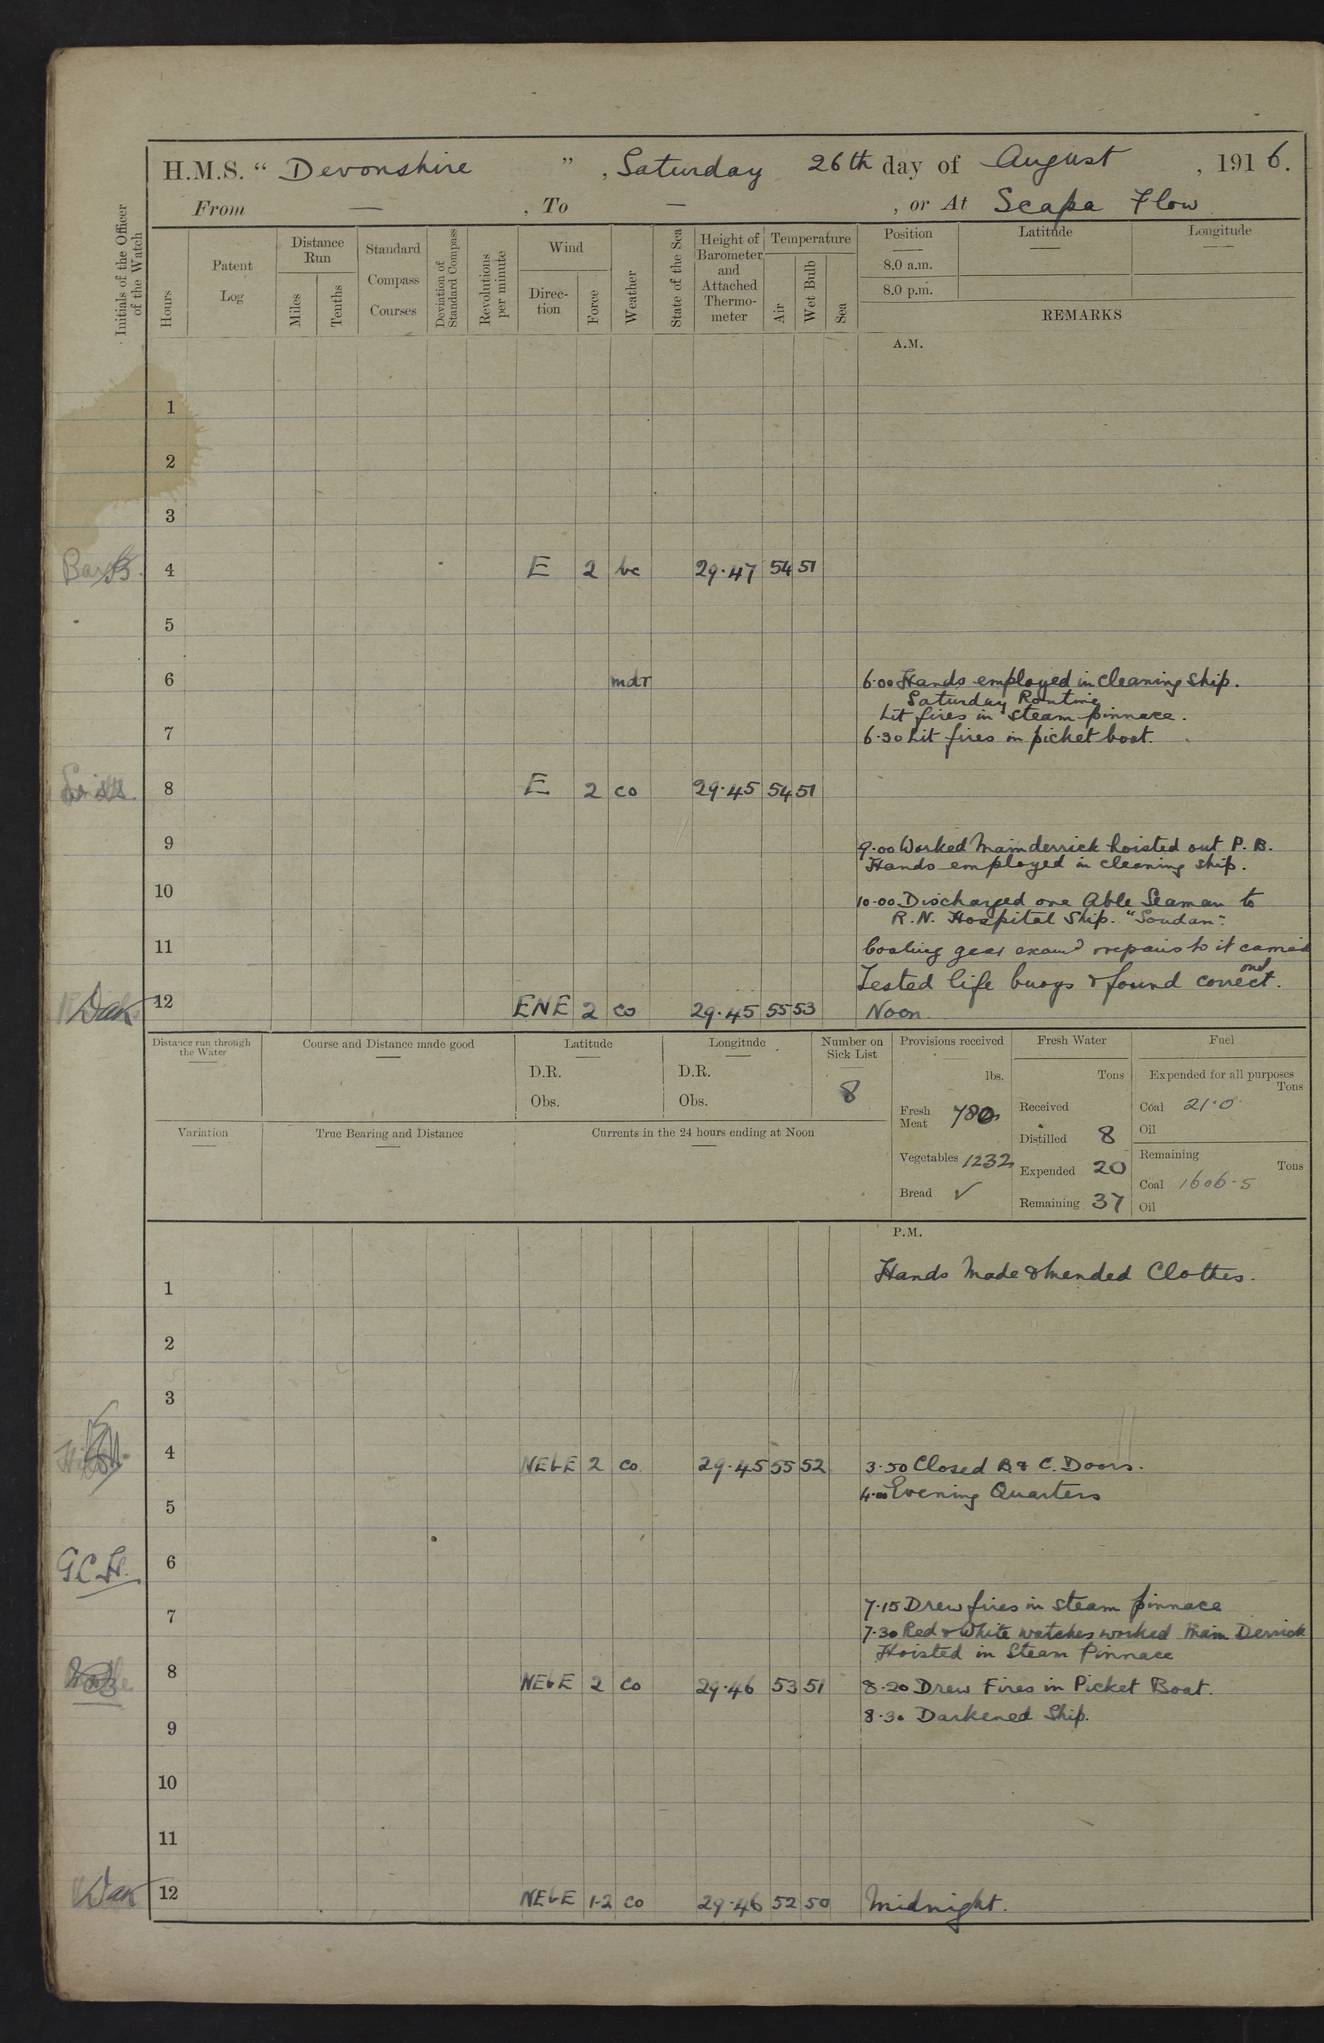 H.M.S. “ Devonshire ”, Saturday 26th day of August , 1916.
From — , To — , or At Scapa Flow
Initials of the Officer of the Watch
Hours
Patent Log
Distance Run
Miles
Tenths
Standard Compass Courses
Deviation of Standard Compass
Revolutions per minute
Wind
Direction
Force
Weather
State of the Sea
Height of Barometer and Attached Thermometer
Temperature
Air
Wet Bulb
Sea
Position
8.0 a.m.
8.0 p.m.
Latitude
Longitude
REMARKS
A.M.
1
2
3
4 E 2 bc 29.47 54 51
5
6 mdr 6.00 Hands employed in cleaning ship.
Saturday Routine
Lit fires in steam pinnace.
7 6.30 Lit fires in picket boat.
8 E 2 co 29.45 54 51
9 9.00 Worked Main derrick hoisted out P. B.
Hands employed in cleaning ship.
10 10.00 Discharged one Able Seaman to
R.N. Hospital Ship. "Soudan".
11 Coaling gear examd repairs to it carried
out
Tested life buoys & found correct.
12 ENE 2 co 29.45 55 53 Noon.
Distance run through the Water
Course and Distance made good
Latitude
D.R.
Obs.
Longitude
D.R.
Obs.
Number on Sick List
8
Provisions received
lbs.
Fresh Meat 780
Vegetables 1232
Bread ✓
Fresh Water
Tons
Received
Distilled 8
Expended 20
Remaining 37
Fuel
Expended for all purposes
Tons
Coal 21.0
Oil
Remaining
Tons
Coal 1606.5
Oil
Variation
True Bearing and Distance
Currents in the 24 hours ending at Noon
P.M.
Hands Made & Mended Clothes.
1
2
3
4 NEbE 2 co 29.45 55 52 3.50 Closed B & C. Doors.
4.00 Evening Quarters
5
G.C.H. 6
7 7.15 Drew fires in steam pinnace
7.30 Red & White watches worked Main Derrick
Hoisted in Steam Pinnace
8 NEbE 2 co 29.46 53 51 8.20 Drew Fires in Picket Boat.
8.30 Darkened Ship.
9
10
11
12 NEbE 1-2 co 29.46 52 50 Midnight.